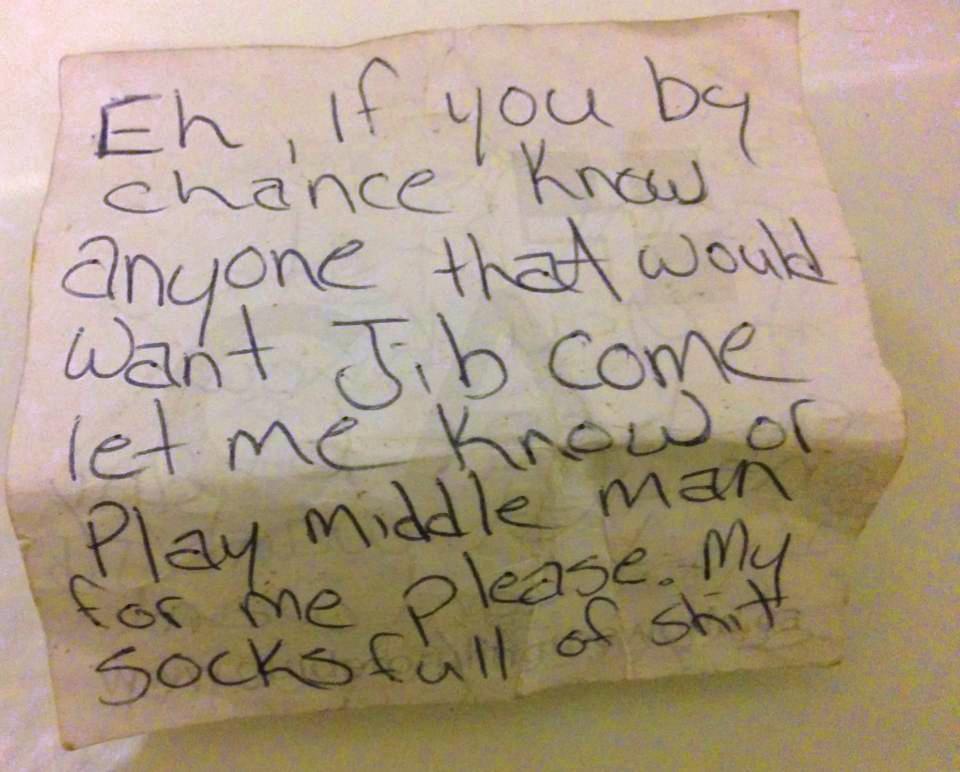 Eh, if you by
chance know
anyone that would
want Jib come
let me know or
Play middle man
for me please. My
socks full of shit